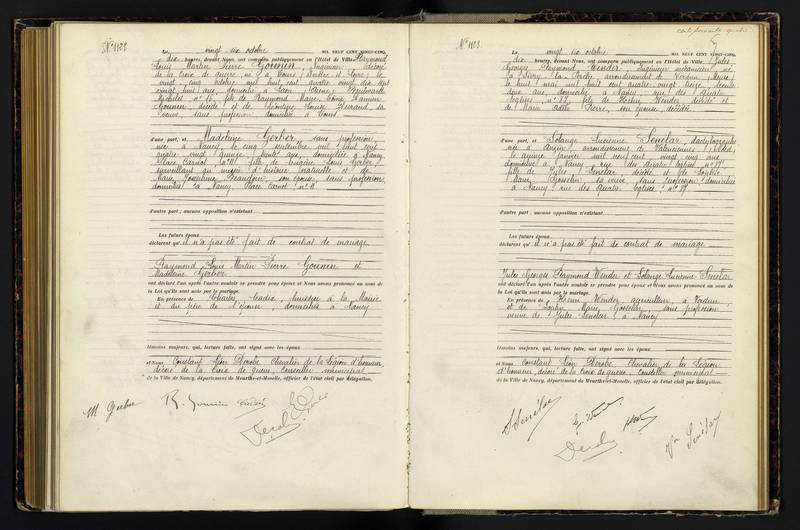 N° 1122
Le vingt six octobre MIL NEUF CENT VINGT-CINQ,
dix heures, devant Nous, ont comparu publiquement en l'Hôtel de Ville Raymond
Louis Martin Pierre Gounin, Ingénieur, décoré
de la Croix de guerre, né à Tours (Indre et Loire), le
vingt cinq octobre mil huit cent quatre vingt dix sept
vingt huit ans, domicilié à Caen, Boulevard
n° 15, fils de Raymond Marie
Gounin, décédé et de Louise Durand, sa
veuve, sans profession domiciliée à Tours.
d'une part, et Madeleine Gerber, sans profession,
née à Nancy, le cinq septembre mil huit cent
quatre vingt quinze, trente ans, domiciliée à Nancy
Place Carnot n° 8, fille de Eugène Louis Gerber,
surveillant au musée d'histoire naturelle et de
Marie Joséphine Beaudoin, son épouse, sans profession,
domiciliés à Nancy Place Carnot n° 8
d'autre part; aucune opposition n'existant.
Les futurs époux
déclarent qu'il n'a pas été fait de contrat de mariage
Raymond Louis Martin Pierre Gounin et
Madeleine Gerber
ont déclaré l'un après l'autre vouloir se prendre pour époux et Nous avons prononcé au nom de
la Loi qu'ils sont unis par le mariage.
En présence de Charles Cadic, huissier à la Mairie
et du père de l'épouse, domiciliés à Nancy
témoins majeurs, qui, lecture faite, ont signé avec les époux
et Nous Constant Léon Dérobe Chevalier de la Légion d'honneur,
décoré de la Croix de guerre, Conseiller municipal
de la Ville de Nancy, département de Meurthe-et-Moselle, officier de l'état civil par délégation.
M Gerber R. Gounin
N° 1123
Le vingt six octobre MIL NEUF CENT VINGT-CINQ,
dix heures, devant Nous, ont comparu publiquement en l'Hôtel de Ville Jules
Georges Raymond Wender Ingénieur mécanicien né
à arrondissement de Verdun (Meuse)
le huit mai mil huit cent quatre vingt treize, trente
deux ans, domicilié à Nancy rue des Quatre
Eglises, n° 57, fils de Wender décédé et
de Marie Pierre, son épouse, décédée
d'une part, et Solange Lucienne Sénélar, dactylographe
née à Anzin, arrondissement de Valenciennes (Nord),
le quinze janvier mil neuf cent vingt cinq ans
domiciliée à Nancy rue des Quatre Eglises n° 57
fille de Jules Sénélar, décédé et de Sophie
Marie Gosselin sa veuve, sans profession domiciliée
à Nancy rue des Quatre Eglises n° 57
d'autre part; aucune opposition n'existant.
Les futurs époux
déclarent qu'il n'a pas été fait de contrat de mariage
Jules Georges Raymond Wender et Solange Lucienne Sénélar
ont déclaré l'un après l'autre vouloir se prendre pour époux et Nous avons prononcé au nom de
la Loi qu'ils sont unis par le mariage.
En présence de Henri Wender, agriculteur, à
et de Sophie Marie Gosselin, sans profession
veuve de Jules Sénélar, à Nancy
témoins majeurs, qui, lecture faite, ont signé avec les époux
et Nous Constant Léon Dérobe Chevalier de la Légion
d'honneur, décoré de la Croix de guerre, Conseiller municipal
de la Ville de Nancy, département de Meurthe-et-Moselle, officier de l'état civil par délégation.
S Sénélar
Vve Sénélar